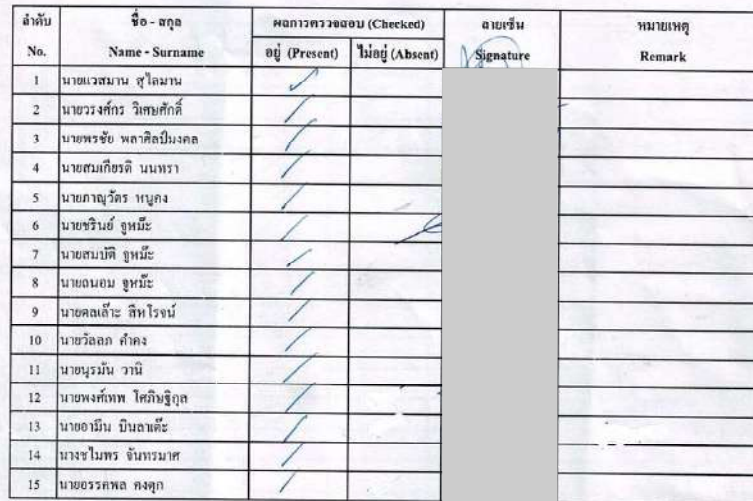 ลำดับ ชื่อ - สกุล ผลการตรวจสอบ (Checked) ลายเซ็น หมายเหตุ
No. Name - Surname อยู่ (Present) ไม่อยู่ (Absent) Signature Remark
1 นายแวสมาน สุไลมาน
2 นายวรงศ์กร วิเศษศักดิ์
3 นายพรชัย พลาศิลป์มงคล
4 นายสมเกียรติ นนทรา
5 นายภาณุวัตร หนูคง
6 นายชรินย์ จูหม๊ะ
7 นายสมบัติ จูหม๊ะ
8 นายถนอม จูหม๊ะ
9 นายดลเล๊าะ สิหโรจน์
10 นายวัลลภ คำคง
11 นายนุรมัน วานิ
12 นายพงศ์เทพ โศภิษฐิกุล
13 นายอามีน บินลาเต๊ะ
14 นางชไมพร จันทรมาศ
15 นายอรรคพล คงตุก